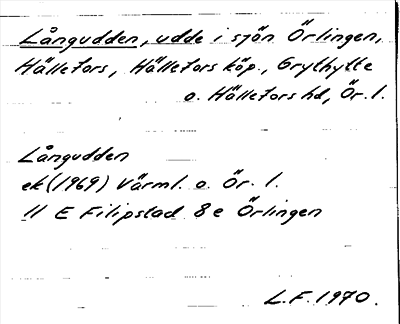 Långudden, udde i sjön Örlingen,
Hällefors, Hällefors köp., Grythytte
o. Hällefors hd, Ör. l.
Långudden
ek (1969) Värml. o. Ör. l.
11 E Filipstad 8 e Örlingen
L.F. 1970.